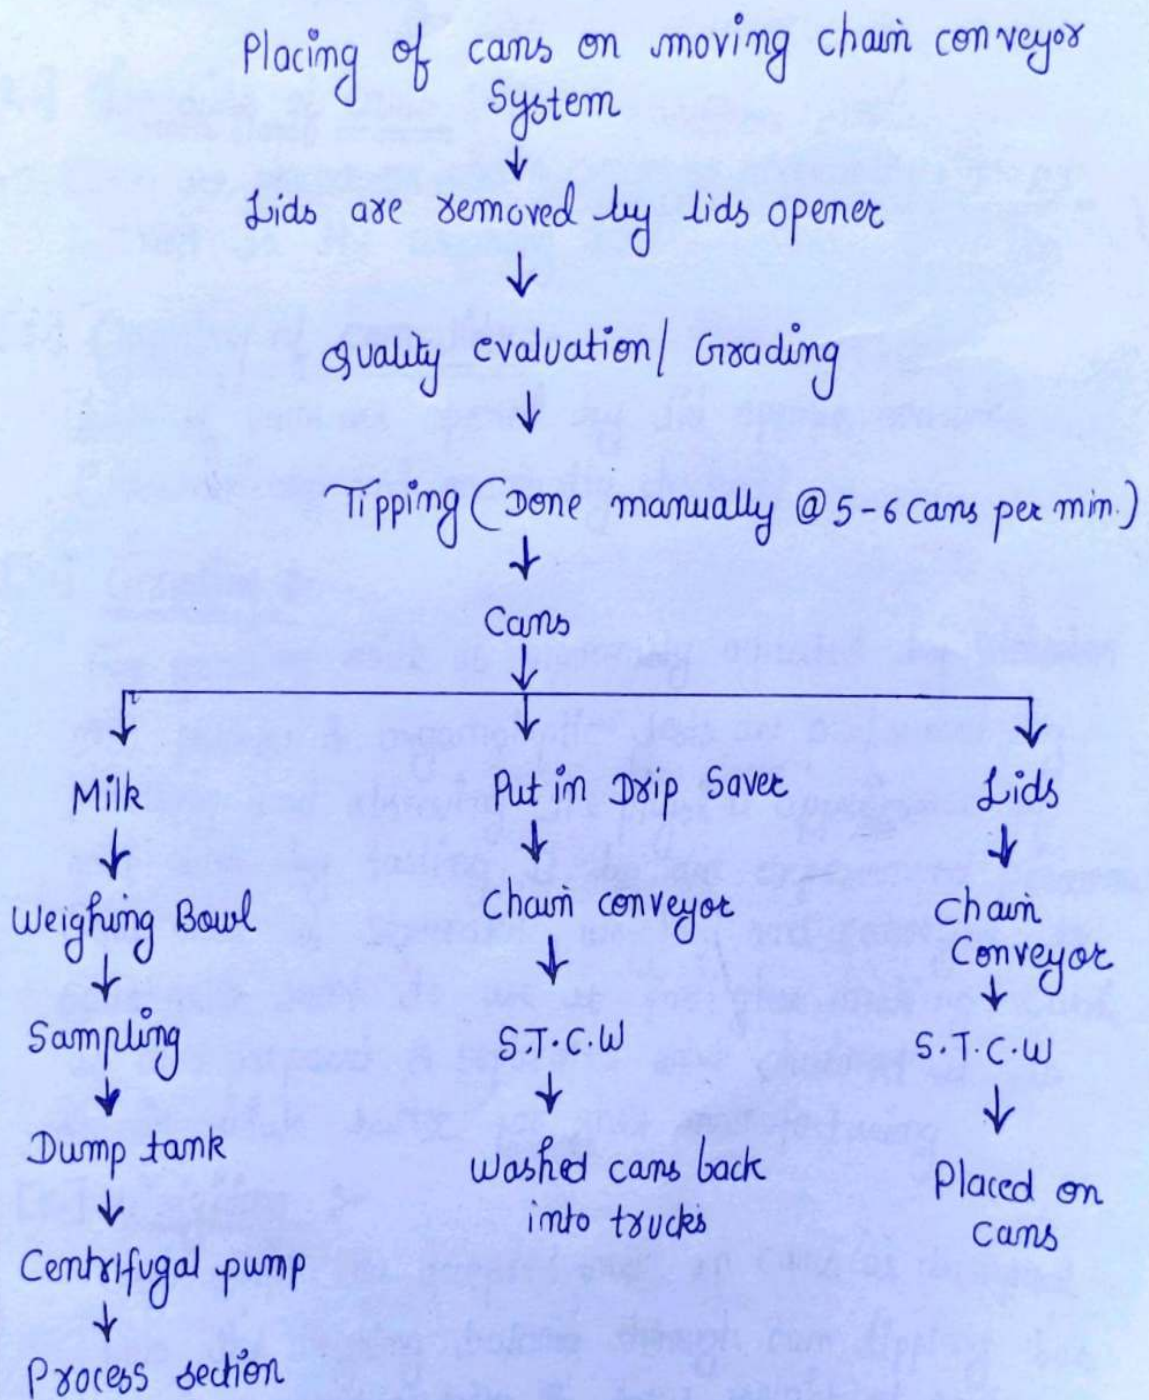 Placing of cans on moving chain conveyor
System
Lids are removed by lids opener
Quality evaluation/ Grading
Tipping (Done manually @ 5-6 cans per min.)
Cans
Milk
Weighing Bowl
Sampling
Dump tank
Centrifugal pump
Process section
Put in Drip Saver
Chain conveyor
S.T.C.W
Washed cans back
into trucks
Lids
Chain
Conveyor
S.T.C.W
Placed on
cans